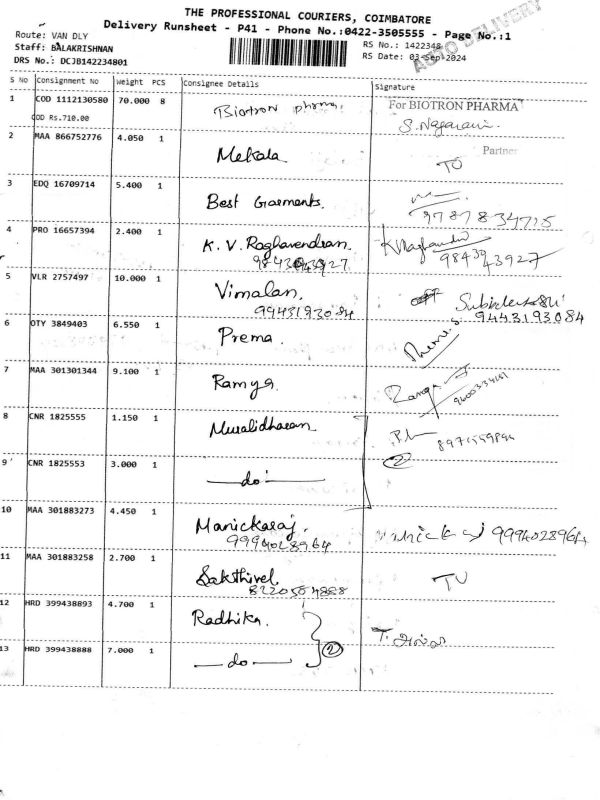 THE PROFESSIONAL COURIERS, COIMBATORE
Delivery Runsheet - P41 - Phone No.:0422-3505555 - Page No.:1
AUTO DELIVERY
Route: VAN DLY
RS No.: 1422348
Staff: BALAKRISHNAN
RS Date: 03-Sep-2024
DRS No.: DCJB142234801
S No Consignment No Weight PCS Consignee Details Signature
1 COD 1112130580 70.000 8 Biotron pharma. For BIOTRON PHARMA
COD Rs.710.00 S. Nagarani
Partner
2 MAA 866752776 4.050 1 Mekala TO
3 EDQ 16709714 5.400 1 Best Garments.
9787834715
4 PRO 16657394 2.400 1 K. V. Raghavendran
9843943927 9843943927
5 VLR 2757497 10.000 1 Vimalan
9943193084 9443193084
6 OTY 3849403 6.550 1 Prema
7 MAA 301301344 9.100 1 Ramya
8 CNR 1825555 1.150 1 Muralidharan
9 CNR 1825553 3.000 1 do 2
10 MAA 301883273 4.450 1 Manickaraj
9994028964 9994028964
11 MAA 301883258 2.700 1 Sakthivel
12 HRD 399438893 4.700 1 Radhika
13 HRD 399438888 7.000 1 do 2